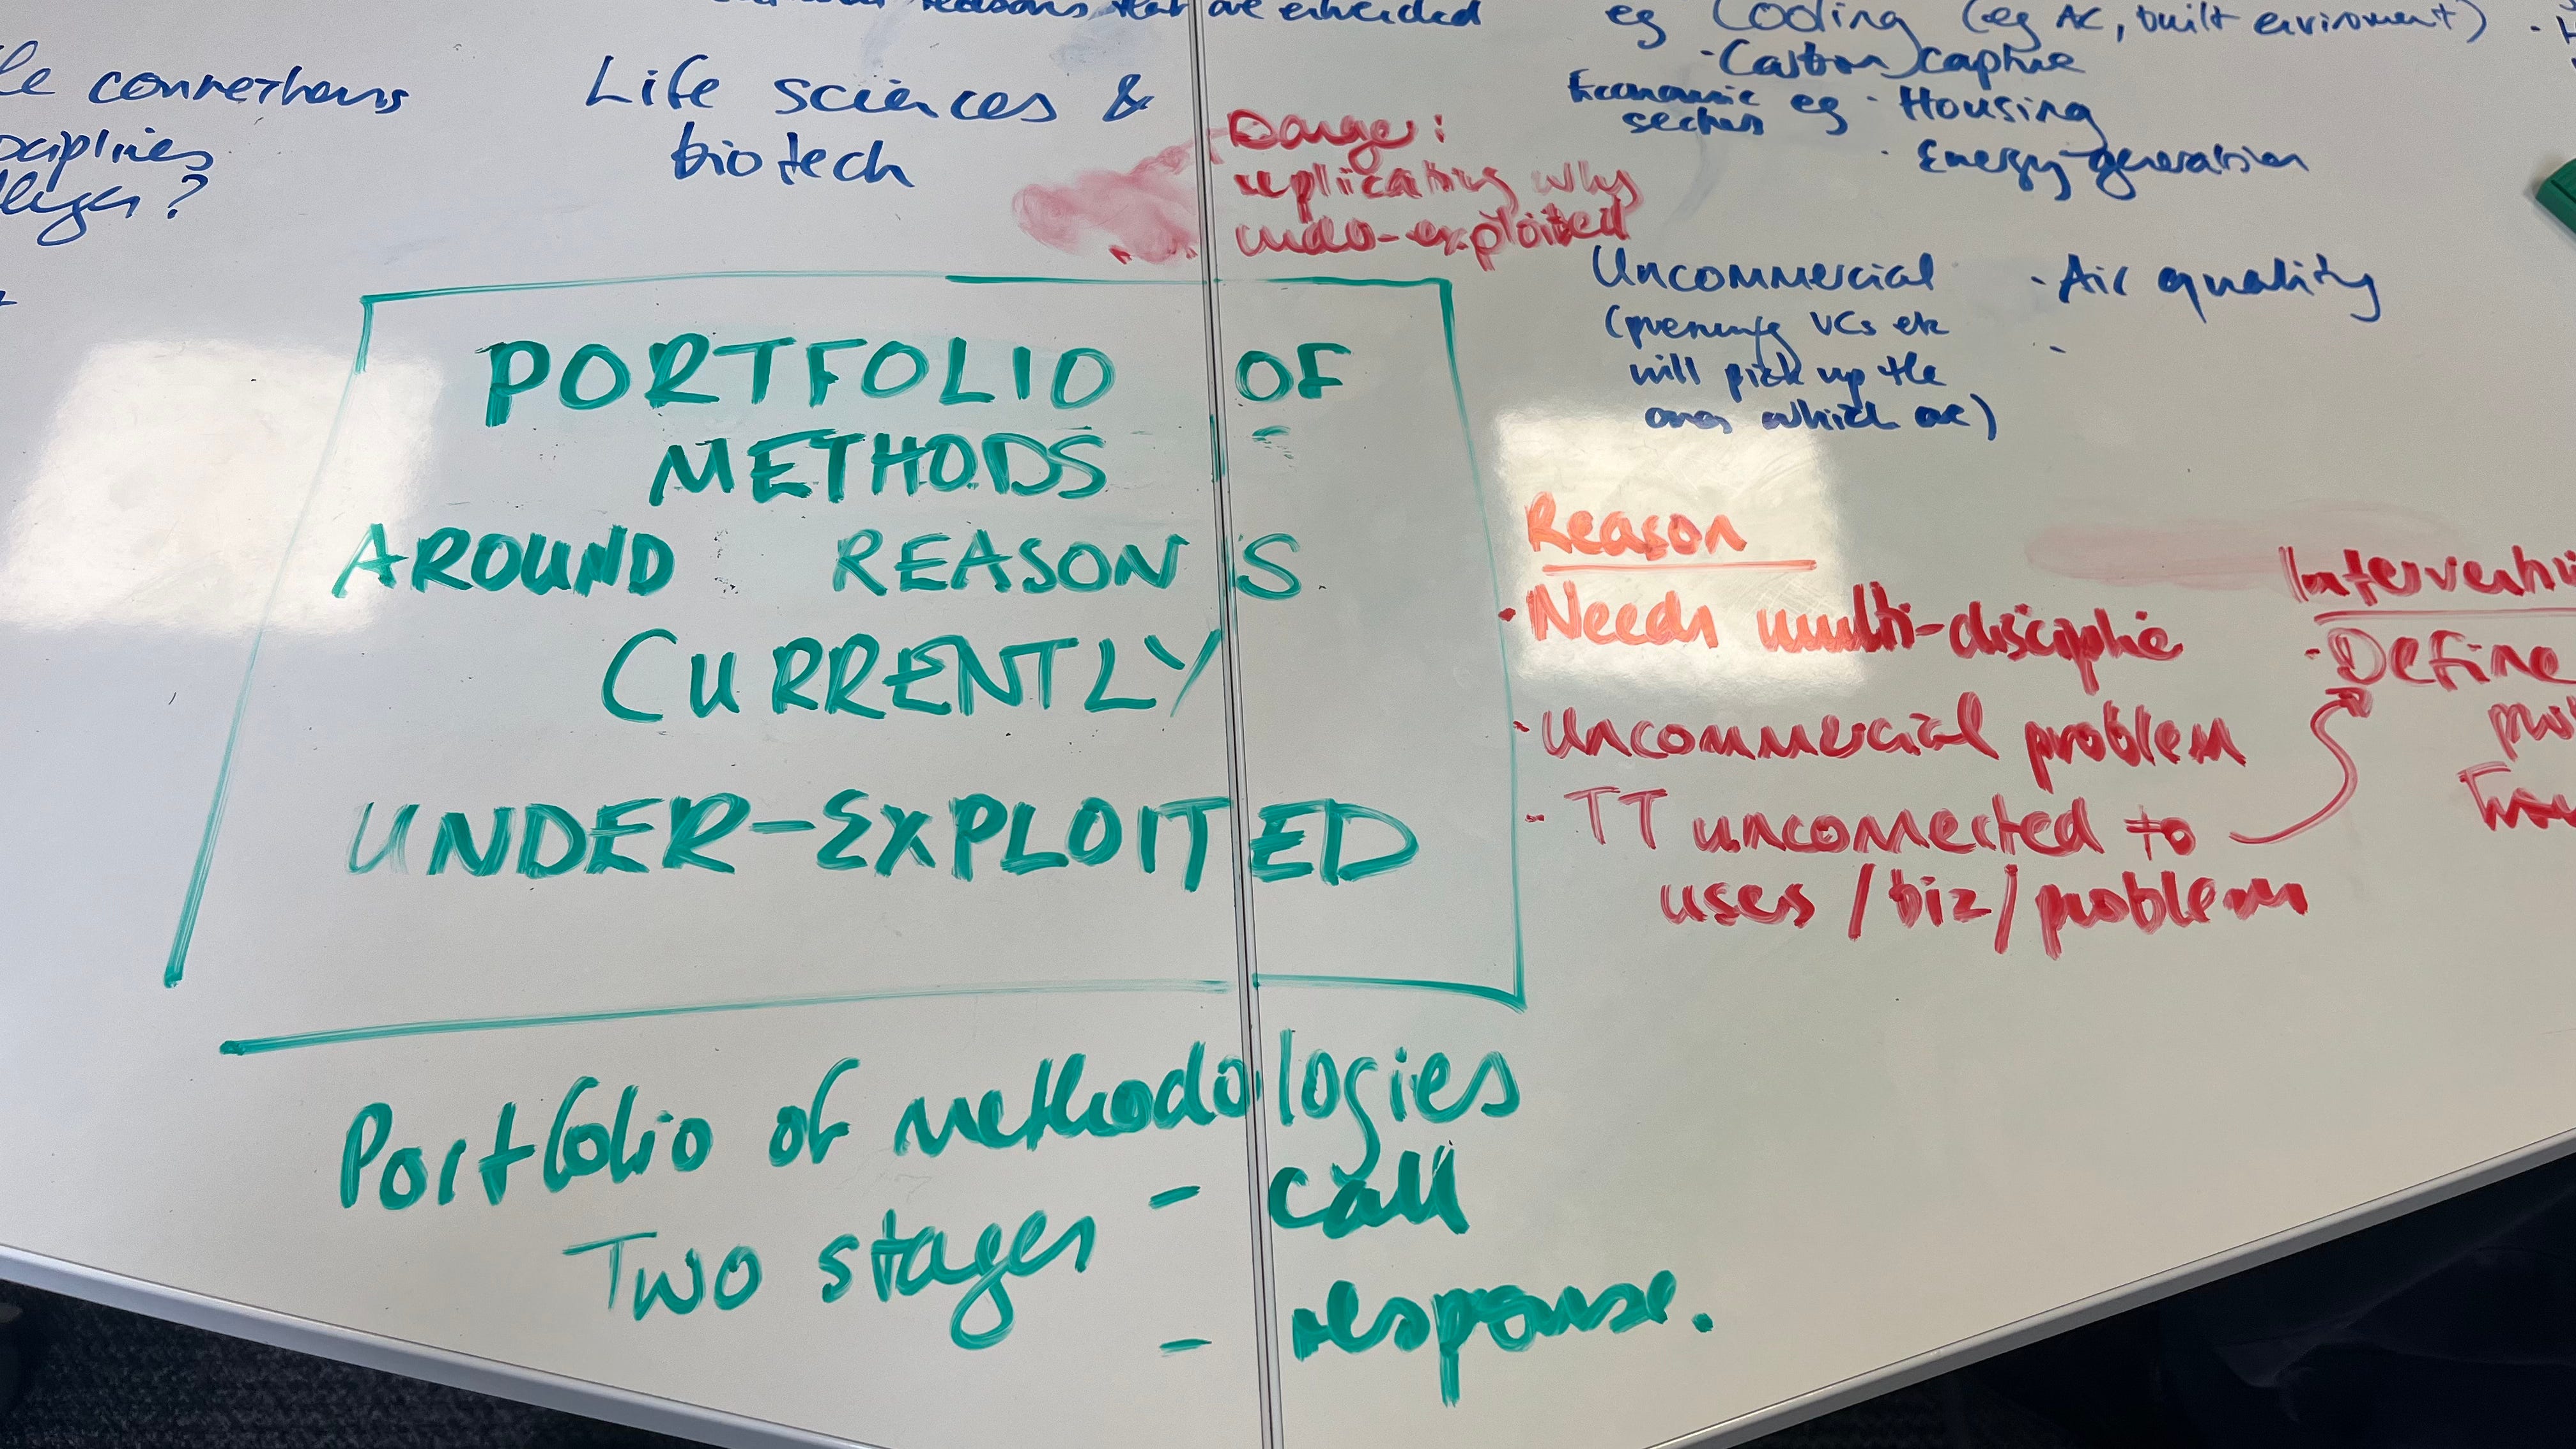 reasons that are embedded
le connections
Life sciences &
biotech
Danger:
replicating why
under-exploited
eg Cooling (eg AC, built enviroment)
· Carbon capture
Economic
sectors eg · Housing
· Energy generation
Uncommercial
(presuming VCs etc
will pick up the
ones which are)
· Air quality
PORTFOLIO OF
METHODS
AROUND REASONS
CURRENTLY
UNDER-EXPLOITED
Reason
· Needs multi-discipline
· Uncommercial problem
· TT unconnected to
uses / biz / problem
· Define
Portfolio of methodologies
Two stages - call
- response.